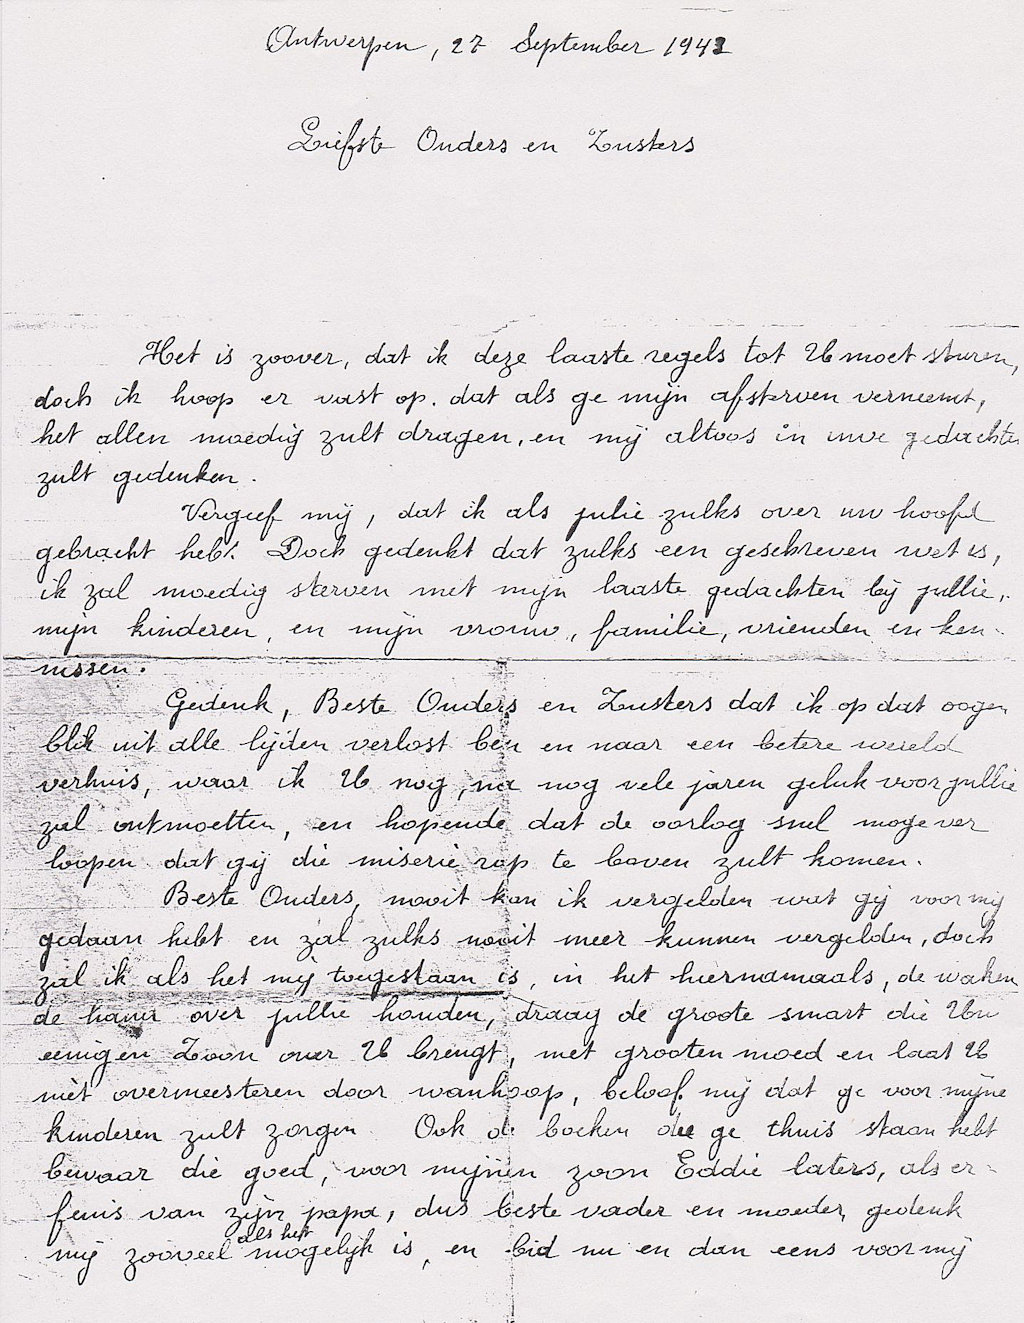 Antwerpen, 27 September 1943
Liefste Ouders en Zusters
Het is zoover, dat ik deze laaste regels tot U moet sturen,
doch ik hoop er vast op. dat als ge mijn afsterven verneemt,
het allen moedig zult dragen, en mij altoos in uwe gedachten
zult gedenken.
Vergeef mij, dat ik als julie zulks over uw hoofd
gebracht hebt. Doch gedenkt dat zulks een geschreven wet is,
ik zal moedig sterven met mijn laaste gedachten bij jullie,
mijn kinderen, en mijn vrouw, familie, vrienden en ken-
nissen.
Gedenk, Beste Ouders en Zusters dat ik op dat oogen
blik uit alle lijden verlost ben en naar een betere wereld
verhuis, waar ik U nog, na nog vele jaren geluk voor jullie
zal ontmoetten, en hopende dat de oorlog snel moge ver
loopen dat gij die miserie rap te boven zult komen.
Beste Ouders, nooit kan ik vergelden wat gij voor mij
gedaan hebt en zal zulks nooit meer kunnen vergelden, doch
zal ik als het mij toegestaan is, in het hiernamaals, de waken
de hand over jullie houden, draag de groote smart die Uw
eenigen Zoon over U brengt, met grooten moed en laat U
niet overmeesteren door wanhoop, beloof mij dat ge voor mijne
kinderen zult zorgen Ook de boeken die ge thuis staan hebt
bewaar die goed, voor mijnen zoon Eddie laters, als er-
fenis van zijn papa, dus beste vader en moeder, gedenk
mij zooveel als het mogelijk is, en bid nu en dan eens voor mij